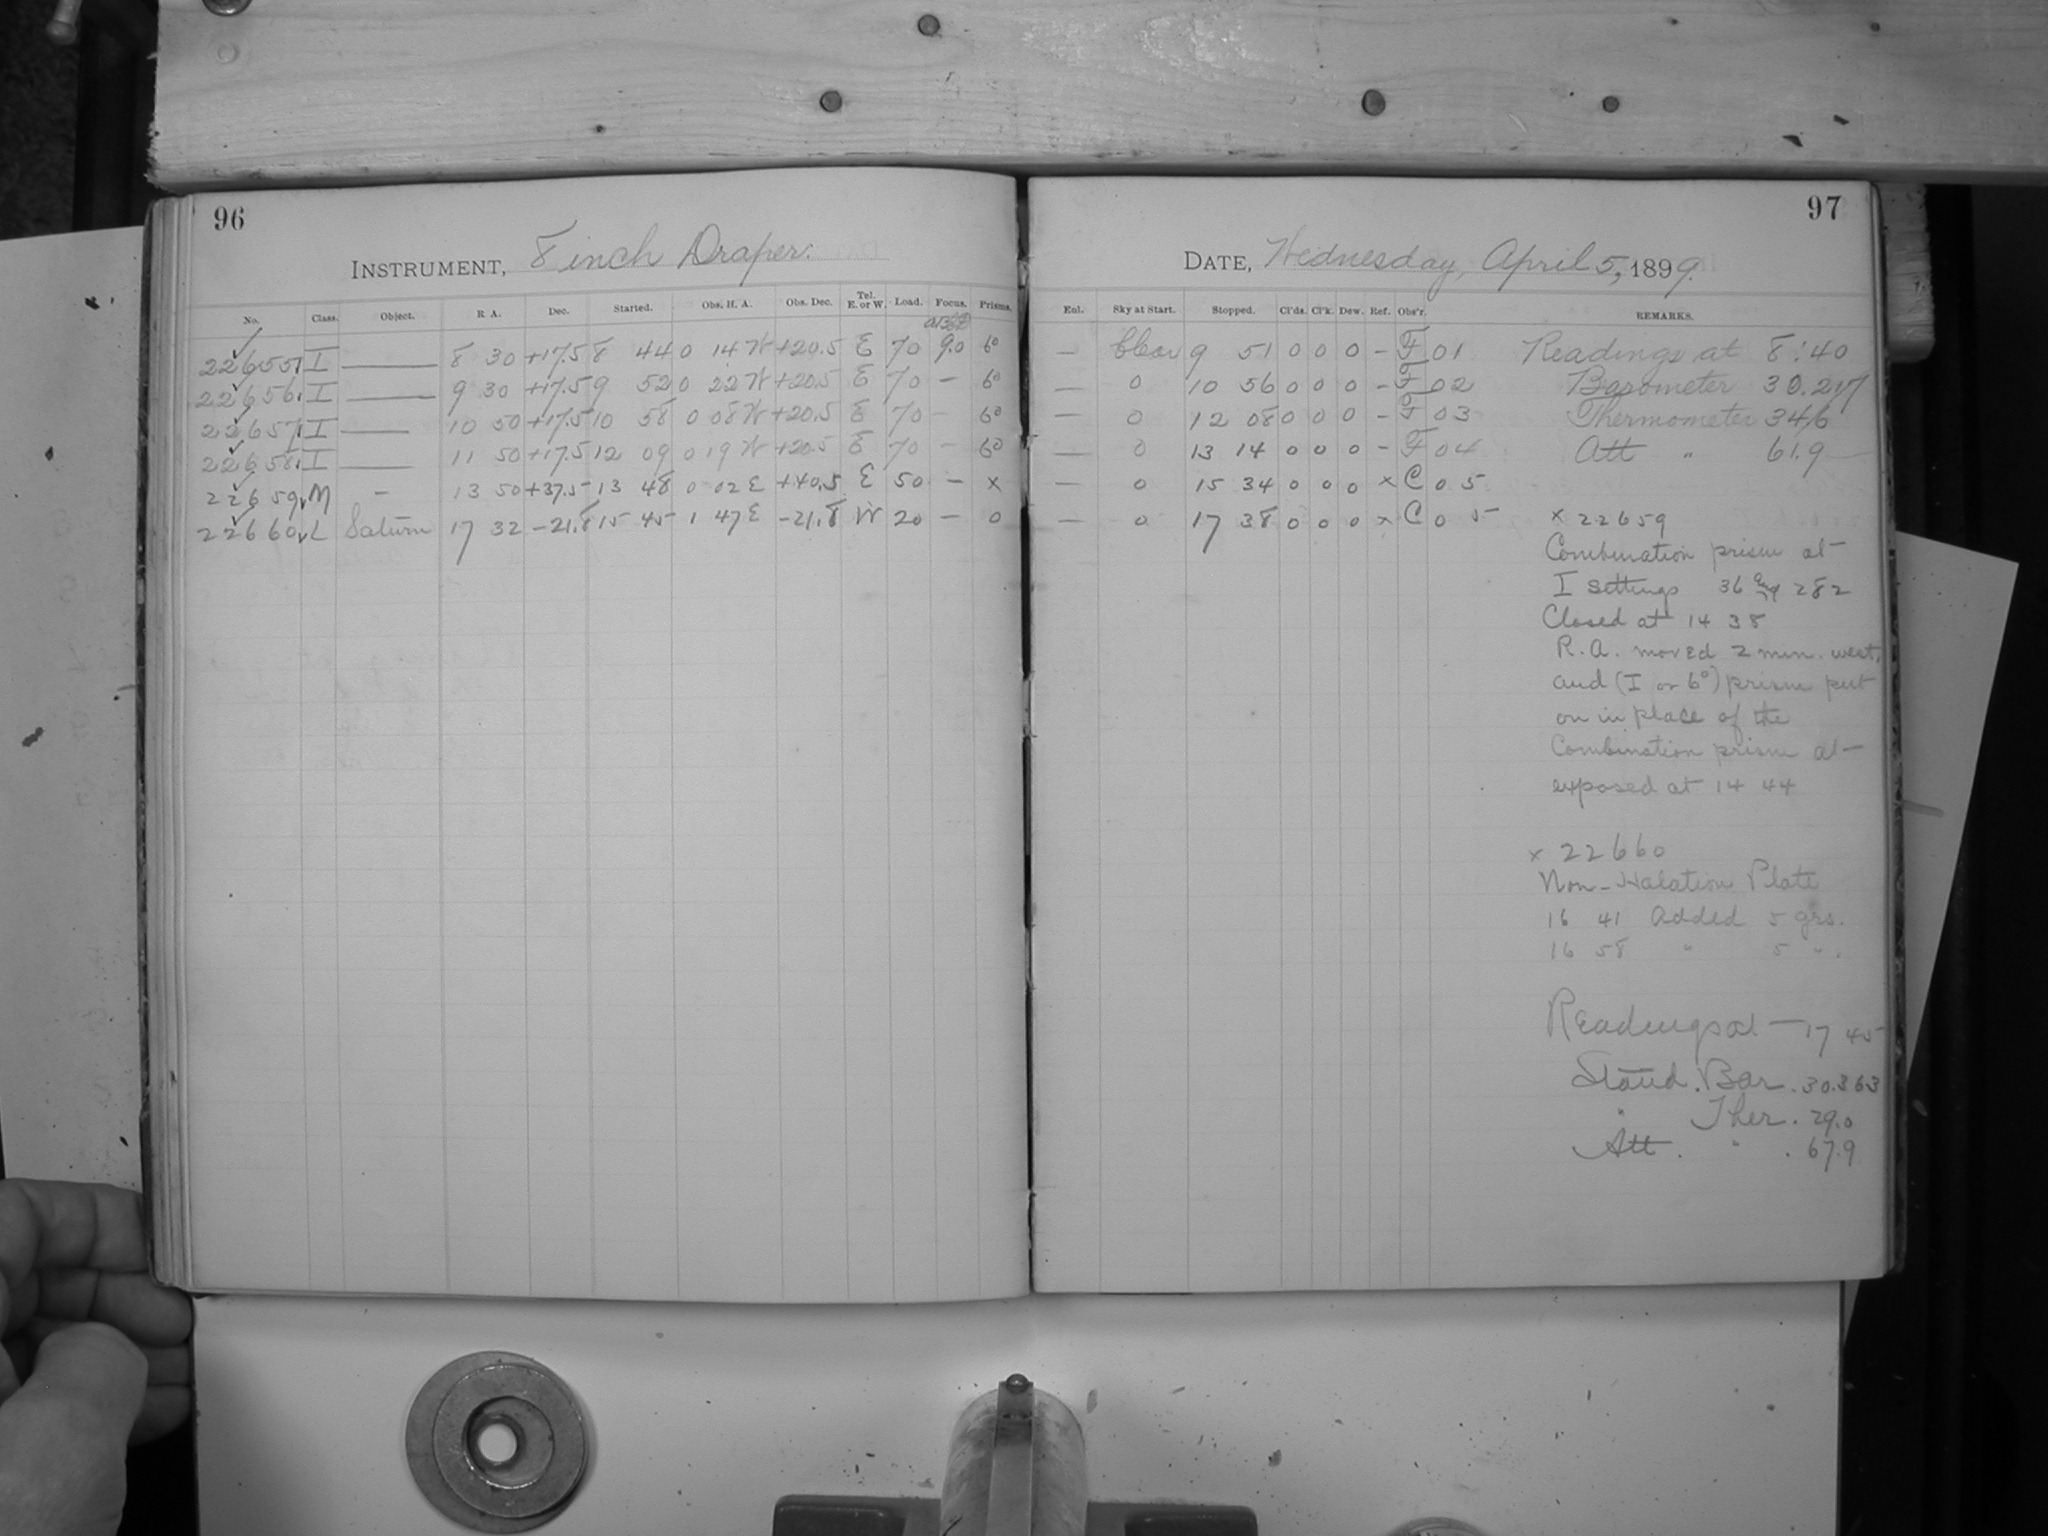 96
INSTRUMENT, 8 inch Draper.
No. Class. Object. R A. Dec. Started. Obs. H. A. Obs. Dec. Tel. E. or W. Load. Focus. Prisms.
22655 I — 8 30 +17.5 8 44 0 14 W +20.5 E 70 9.0 6°
22656 I — 9 30 +17.5 9 52 0 22 W +20.5 E 70 — 6°
22657 I — 10 50 +17.5 10 58 0 08 W +20.5 E 70 - 6°
22658 I — 11 50 +17.5 12 09 0 19 W +20.5 E 70 - 6°
22659 M — 13 50 +37.5 13 48 0 02 E +40.5 E 50 - x
22660 L Saturn 17 32 -21.8 15 45 1 47 E -21.8 W 20 — 0
97
DATE, Wednesday, April 5, 1899.
Enl. Sky at Start. Stopped. Cl'ds. Cl'k. Dew. Ref. Obs'r. REMARKS.
— Clear 9 51 0 0 0 - F 01 Readings at 8:40
— 0 10 56 0 0 0 - F 02 Barometer 30.217
— 0 12 08 0 0 0 - F 03 Thermometer 34.6
— 0 13 14 0 0 0 - F 04 Att " 61.9
— 0 15 34 0 0 0 x C 0 5
— 0 17 38 0 0 0 x C 0 5
x 22659
Combination prism at
I settings 36 and 282
Closed at 14 38
R.A. moved 2 min. west,
and (I or 6°) prism put
on in place of the
Combination prism at
exposed at 14 44
x 22660
Non-Halation Plate
16 41 Added 5 grs.
16 58 " 5 ".
Readings at 17 45
Stand. Bar. 30.363
" Ther. 29.0
Att. " . 67.9